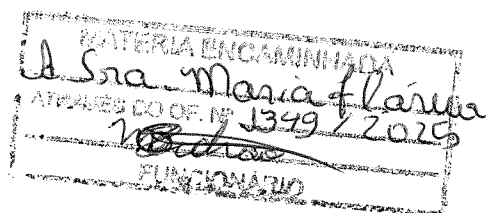 MATERIA ENCAMINHADA
A Sra. Maria Flávia
ATRAVÉS DO OF. Nº 1349/2025
FUNCIONARIO